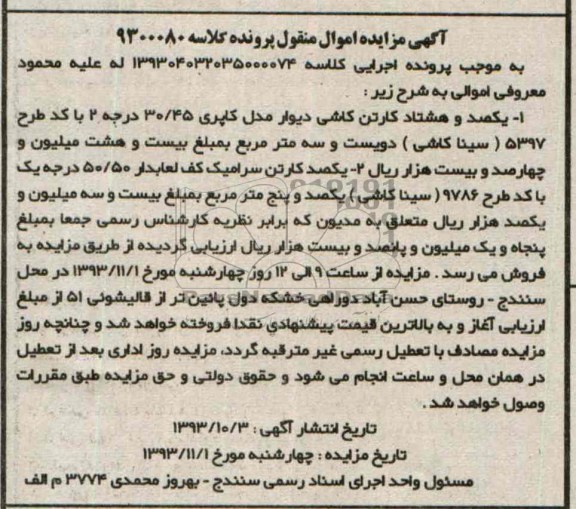 آگهی مزایده اموال منقول پرونده کلاسه ۹۳۰۰۰۸۰
به موجب پرونده اجرایی کلاسه ۱۳۹۳۰۴۰۳۲۰۳۵۰۰۰۰۷۴ له علیه محمود
معروفی اموالی به شرح زیر :
۱- یکصد و هشتاد کارتن کاشی دیوار مدل کاپری ۳۰/۴۵ درجه ۲ با کد طرح
۵۳۹۷ ( سینا کاشی ) دویست و سه متر مربع بمبلغ بیست و هشت میلیون و
چهارصد و بیست هزار ریال ۲- یکصد کارتن سرامیک کف لعابدار ۵۰/۵۰ درجه یک
با کد طرح ۹۷۸۶ ( سینا کاشی ) یکصد و پنج متر مربع بمبلغ بیست و سه میلیون و
یکصد هزار ریال متعلق به مدیون که برابر نظریه کارشناس رسمی جمعا بمبلغ
پنجاه و یک میلیون و پانصد و بیست هزار ریال ارزیابی گردیده از طریق مزایده به
فروش می رسد . مزایده از ساعت ۹ الی ۱۲ روز چهارشنبه مورخ ۱۳۹۳/۱۱/۱ در محل
سنندج - روستای حسن آباد دوراهی خشکه دول پائین تر از قالیشوئی ۵۱ از مبلغ
ارزیابی آغاز و به بالاترین قیمت پیشنهادی نقدا فروخته خواهد شد و چنانچه روز
مزایده مصادف با تعطیل رسمی غیر مترقبه گردد، مزایده روز اداری بعد از تعطیل
در همان محل و ساعت انجام می شود و حقوق دولتی و حق مزایده طبق مقررات
وصول خواهد شد .
تاریخ انتشار آگهی : ۱۳۹۳/۱۰/۳
تاریخ مزایده : چهارشنبه مورخ ۱۳۹۳/۱۱/۱
مسئول واحد اجرای اسناد رسمی سنندج - بهروز محمدی ۳۷۷۴ م الف